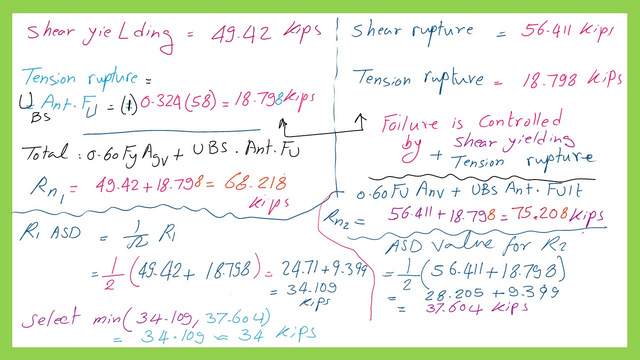 Shear yieLding = 49.42 Kips
Tension rupture =
UBS = Ant. Fu = (1) 0.324(58) = 18.798 Kips
Total : 0.60 Fy Agv + UBS. Ant. Fu
Rn1 = 49.42 + 18.798 = 68.218 Kips
R1 ASD = 1/Ω R1
= 1/2 (49.42 + 18.798) = 24.71 + 9.399
= 34.109 Kips
Select min(34.109, 37.604)
= 34.109 ≈ 34 Kips
Shear rupture = 56.411 Kips
Tension rupture = 18.798 Kips
Failure is Controlled
by Shear yielding
+ Tension rupture
0.60 Fu Anv + UBS Ant. Fult
Rn2 = 56.411 + 18.798 = 75.208 Kips
ASD Value for R2
= 1/2 (56.411 + 18.798)
= 28.205 + 9.399
= 37.604 Kips